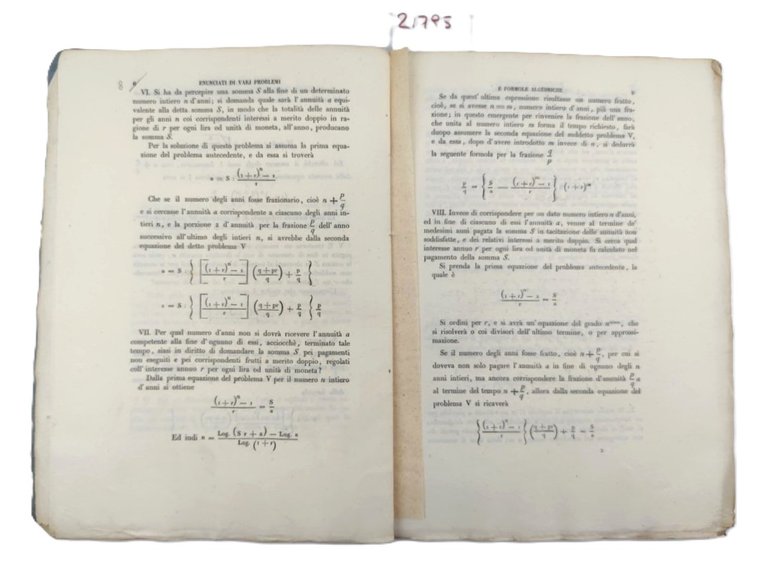 21795
8
ENUNCIATI DI VARJ PROBLEMI
VI. Si ha da percepire una somma S alla fine di un determinato
numero intiero n d'anni; si domanda quale sarà l'annuità a equi-
valente alla detta somma S, in modo che la totalità delle annuità
per gli anni n coi corrispondenti interessi a merito doppio in ra-
gione di r per ogni lira od unità di moneta, all'anno, producano
la somma S.
Per la soluzione di questo problema si assuma la prima equa-
zione del problema antecedente, e da essa si troverà
a = S : ((1+r)^n − 1)/r
Che se il numero degli anni fosse frazionario, cioè n + p/q
e si cercasse l'annuità a corrispondente a ciascuno degli anni in-
tieri n, e la porzione z d'annuità per la frazione p/q dell'anno
successivo all'ultimo degli intieri n, si avrebbe dalla seconda
equazione del detto problema V
a = S : { [((1+r)^n − 1)/r] ((q+pr)/q) + p/q }
z = S : { [((1+r)^n − 1)/r] ((q+pr)/q) + p/q } p/q
VII. Per qual numero d'anni non si dovrà ricevere l'annuità a
competente alla fine d'ognuno di essi, acciocchè, terminato tale
tempo, siasi in diritto di domandare la somma S pei pagamenti
non eseguiti e pei corrispondenti frutti a merito doppio, regolati
coll'interesse annuo r per ogni lira od unità di moneta?
Dalla prima equazione del problema V per il numero n intiero
d'anni si ottiene
((1+r)^n − 1)/r = S/a
Ed indi n = (Log. (S r + a) − Log. a)/(Log. (1 + r))
E FORMOLE ALGEBRICHE 9
Se da quest'ultima espressione risultasse un numero fratto,
cioè, se si avesse n = m, numero intiero d'anni, più una fra-
zione; in questo emergente per rinvenire la frazione dell'anno,
che unita al numero intiero m forma il tempo richiesto, farà
duopo assumere la seconda equazione del suddetto problema V,
e da essa, dopo d'avere introdotto m invece di n, si dedurrà
la seguente formola per la frazione q/p
p/q = { S/a − ((1+r)^m − 1)/r } : (1+r)^m
VIII. Invece di corrispondere per un dato numero intiero n d'anni,
ed in fine di ciascuno di essi l'annuità a, venne al termine de'
medesimi anni pagata la somma S in tacitazione delle annuità non
soddisfatte, e dei relativi interessi a merito doppio. Si cerca qual
interesse annuo r per ogni lira od unità di moneta fu calcolato nel
pagamento della somma S.
Si prenda la prima equazione del problema antecedente, la
quale è
((1+r)^n − 1)/r = S/a
Si ordini per r, e si avrà un'equazione del grado che
si risolverà o coi divisori dell'ultimo termine, o per approssi-
mazione.
Se il numero degli anni fosse fratto, cioè n + p/q, per cui si
doveva non solo pagare l'annuità a in fine di ognuno degli n
anni intieri, ma ancora corrispondere la frazione d'annuità p/q a
al termine del tempo n + p/q, allora dalla seconda equazione del
problema V si ricaverà
{ ((1+r)^n − 1)/r } ((q+pr)/q) + p/q = S/a
2